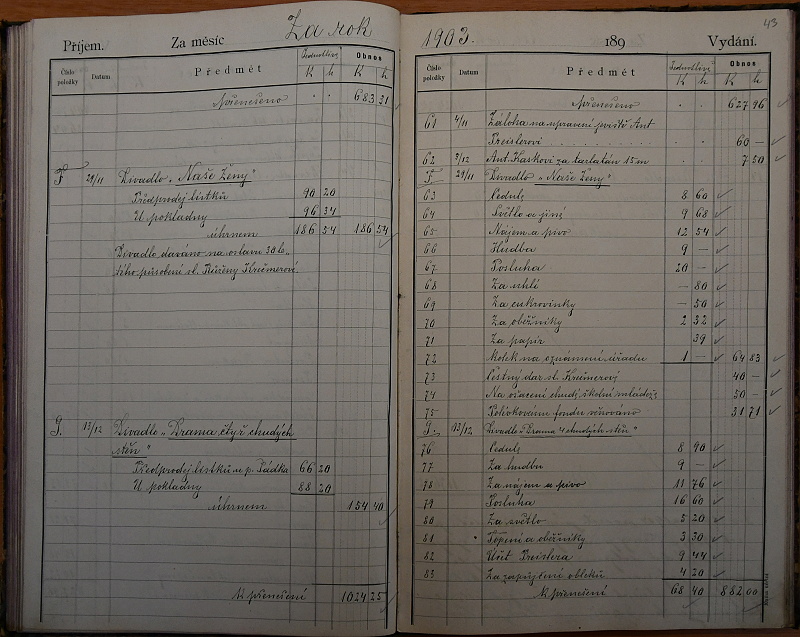 Za rok
Příjem.
Za měsíc
Číslo položky
Datum
Předmět
Jednotlivě
Obnos
K h K h
Přenešeno . . 683 31
F 29/11 Divadlo „Naše ženy"
Předprodej lístků 90 20
U pokladny 96 34
úhrnem 186 54 186 54
Divadlo dáváno na oslavu 30 le-
tého působení sl. Růženy Krušmerové
G. 13/12 Divadlo „Drama čtyř chudých
stěn"
Předprodej lístků u p. Sádka 66 20
U pokladny 88 20
úhrnem 154 40
K přenešení 1024 25
43
1903.
189
Vydání.
Číslo položky
Datum
Předmět
Jednotlivě
Obnos
K h K h
Přenešeno . . 627 96
61 4/11 Záloha na upravení jeviště Ant
Preislerovi 60 —
62 5/12 Ant. Haskovi za tarlatán 15 m . . 7 50
F 29/11 Divadlo „Naše ženy"
63 Cedule 8 60
64 Světlo a jiné 9 68
65 Nájem a pivo 12 54
66 Hudba 9 —
67 Posluha 20 —
68 Za uhlí — 80
69 Za cukrovinky — 50
70 Za oběžníky 2 32
71 Za papír 39
72 Kolek na oznámení úřadu 1 — 64 83
73 Čestný dar sl. Krušmerové 40 —
74 Na ošacení chudé školní mládeže 50 —
75 fondu věnováno 31 71
G. 13/12 Divadlo „Drama 4 chudých stěn"
76 Cedule 8 90
77 Za hudbu 9 —
78 Za nájem a pivo 11 76
79 Posluha 16 60
80 Za světlo 5 20
81 Topení a oběžníky 3 30
82 Účet Preislera 9 44
83 Za zapůjčení obleků 4 20
K přenešení 68 40 882 00